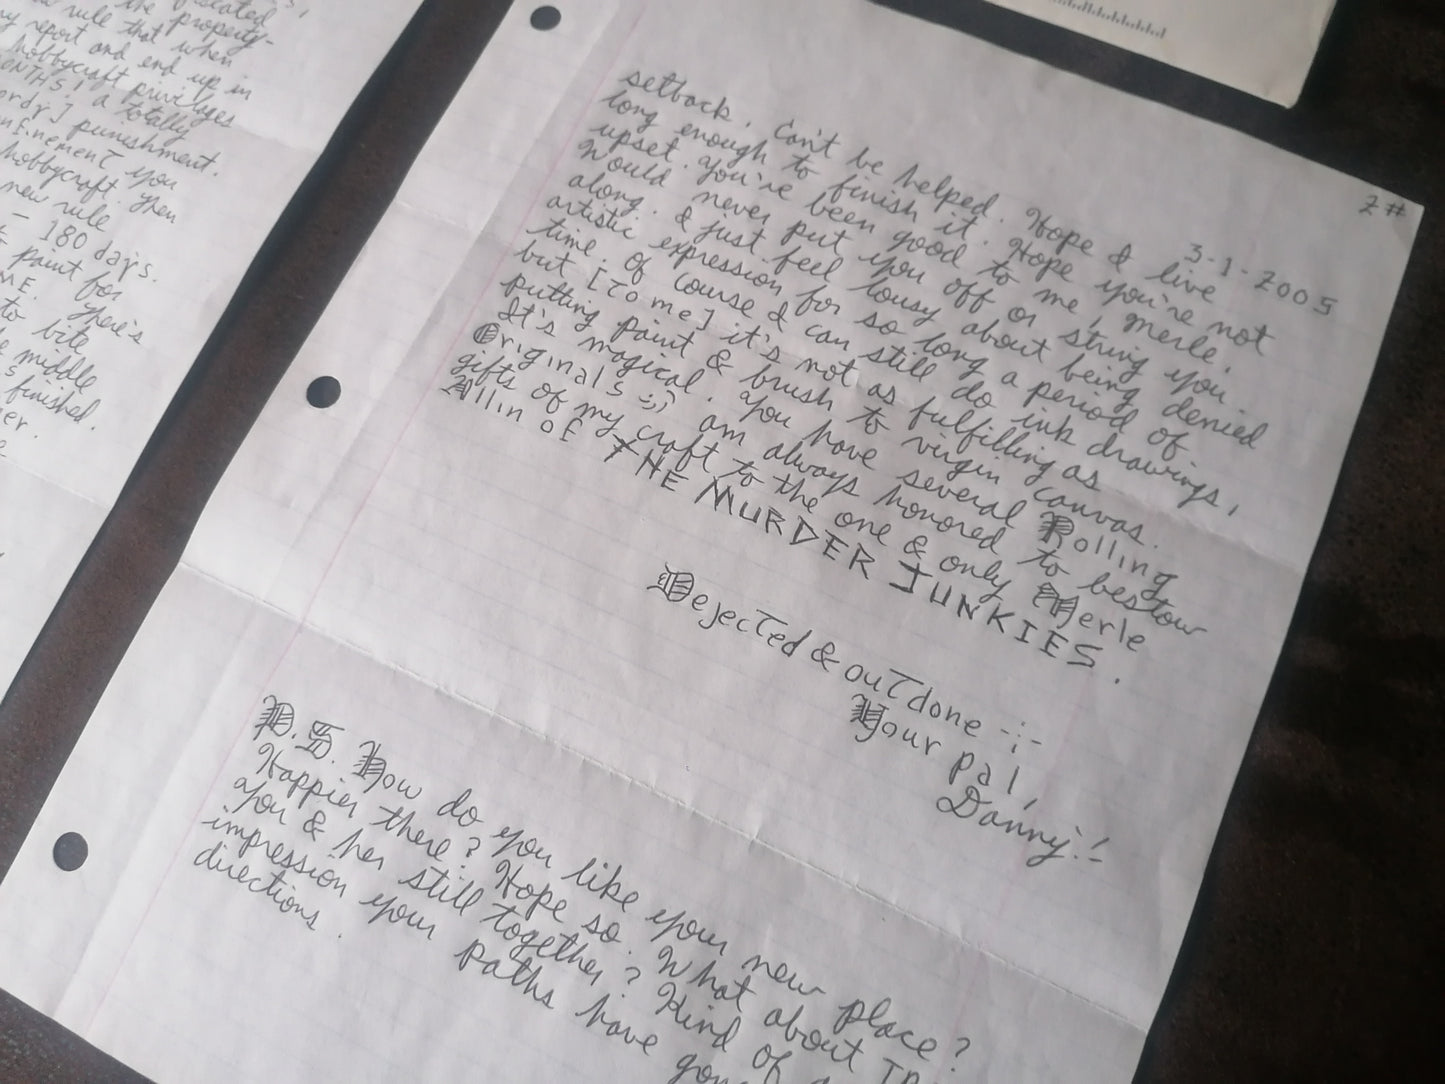 escated
the property-
rule that when
y report and end up in
hobbycraft privileges
ONTHS! a totally
ordy] punishment.
nfinement you
hobbycraft. Then
new rule
- 180 days.
paint for
ME. There's
to bite
middle
finished.
2#
3-1-2005
setback. Can't be helped. Hope I live
long enough to finish it. Hope you're not
upset. You've been good to me, Merle.
Would never put you off or string you
along. I just feel lousy about being denied
artistic expression for so long a period of
time. Of course I can still do ink drawings,
but [to me] it's not as fulfilling as
putting paint & brush to virgin canvas.
It's magical. You have several Rolling
Originals :;) am always honored to bestow
gifts of my craft to the one & only Merle
Allin of THE MURDER JUNKIES.
Dejected & outdone -:-
Your pal,
Danny!-
P.S. How do you like your new place?
Happier there? Hope so. What about
you & her still together? Kind of
impression your paths have
directions.